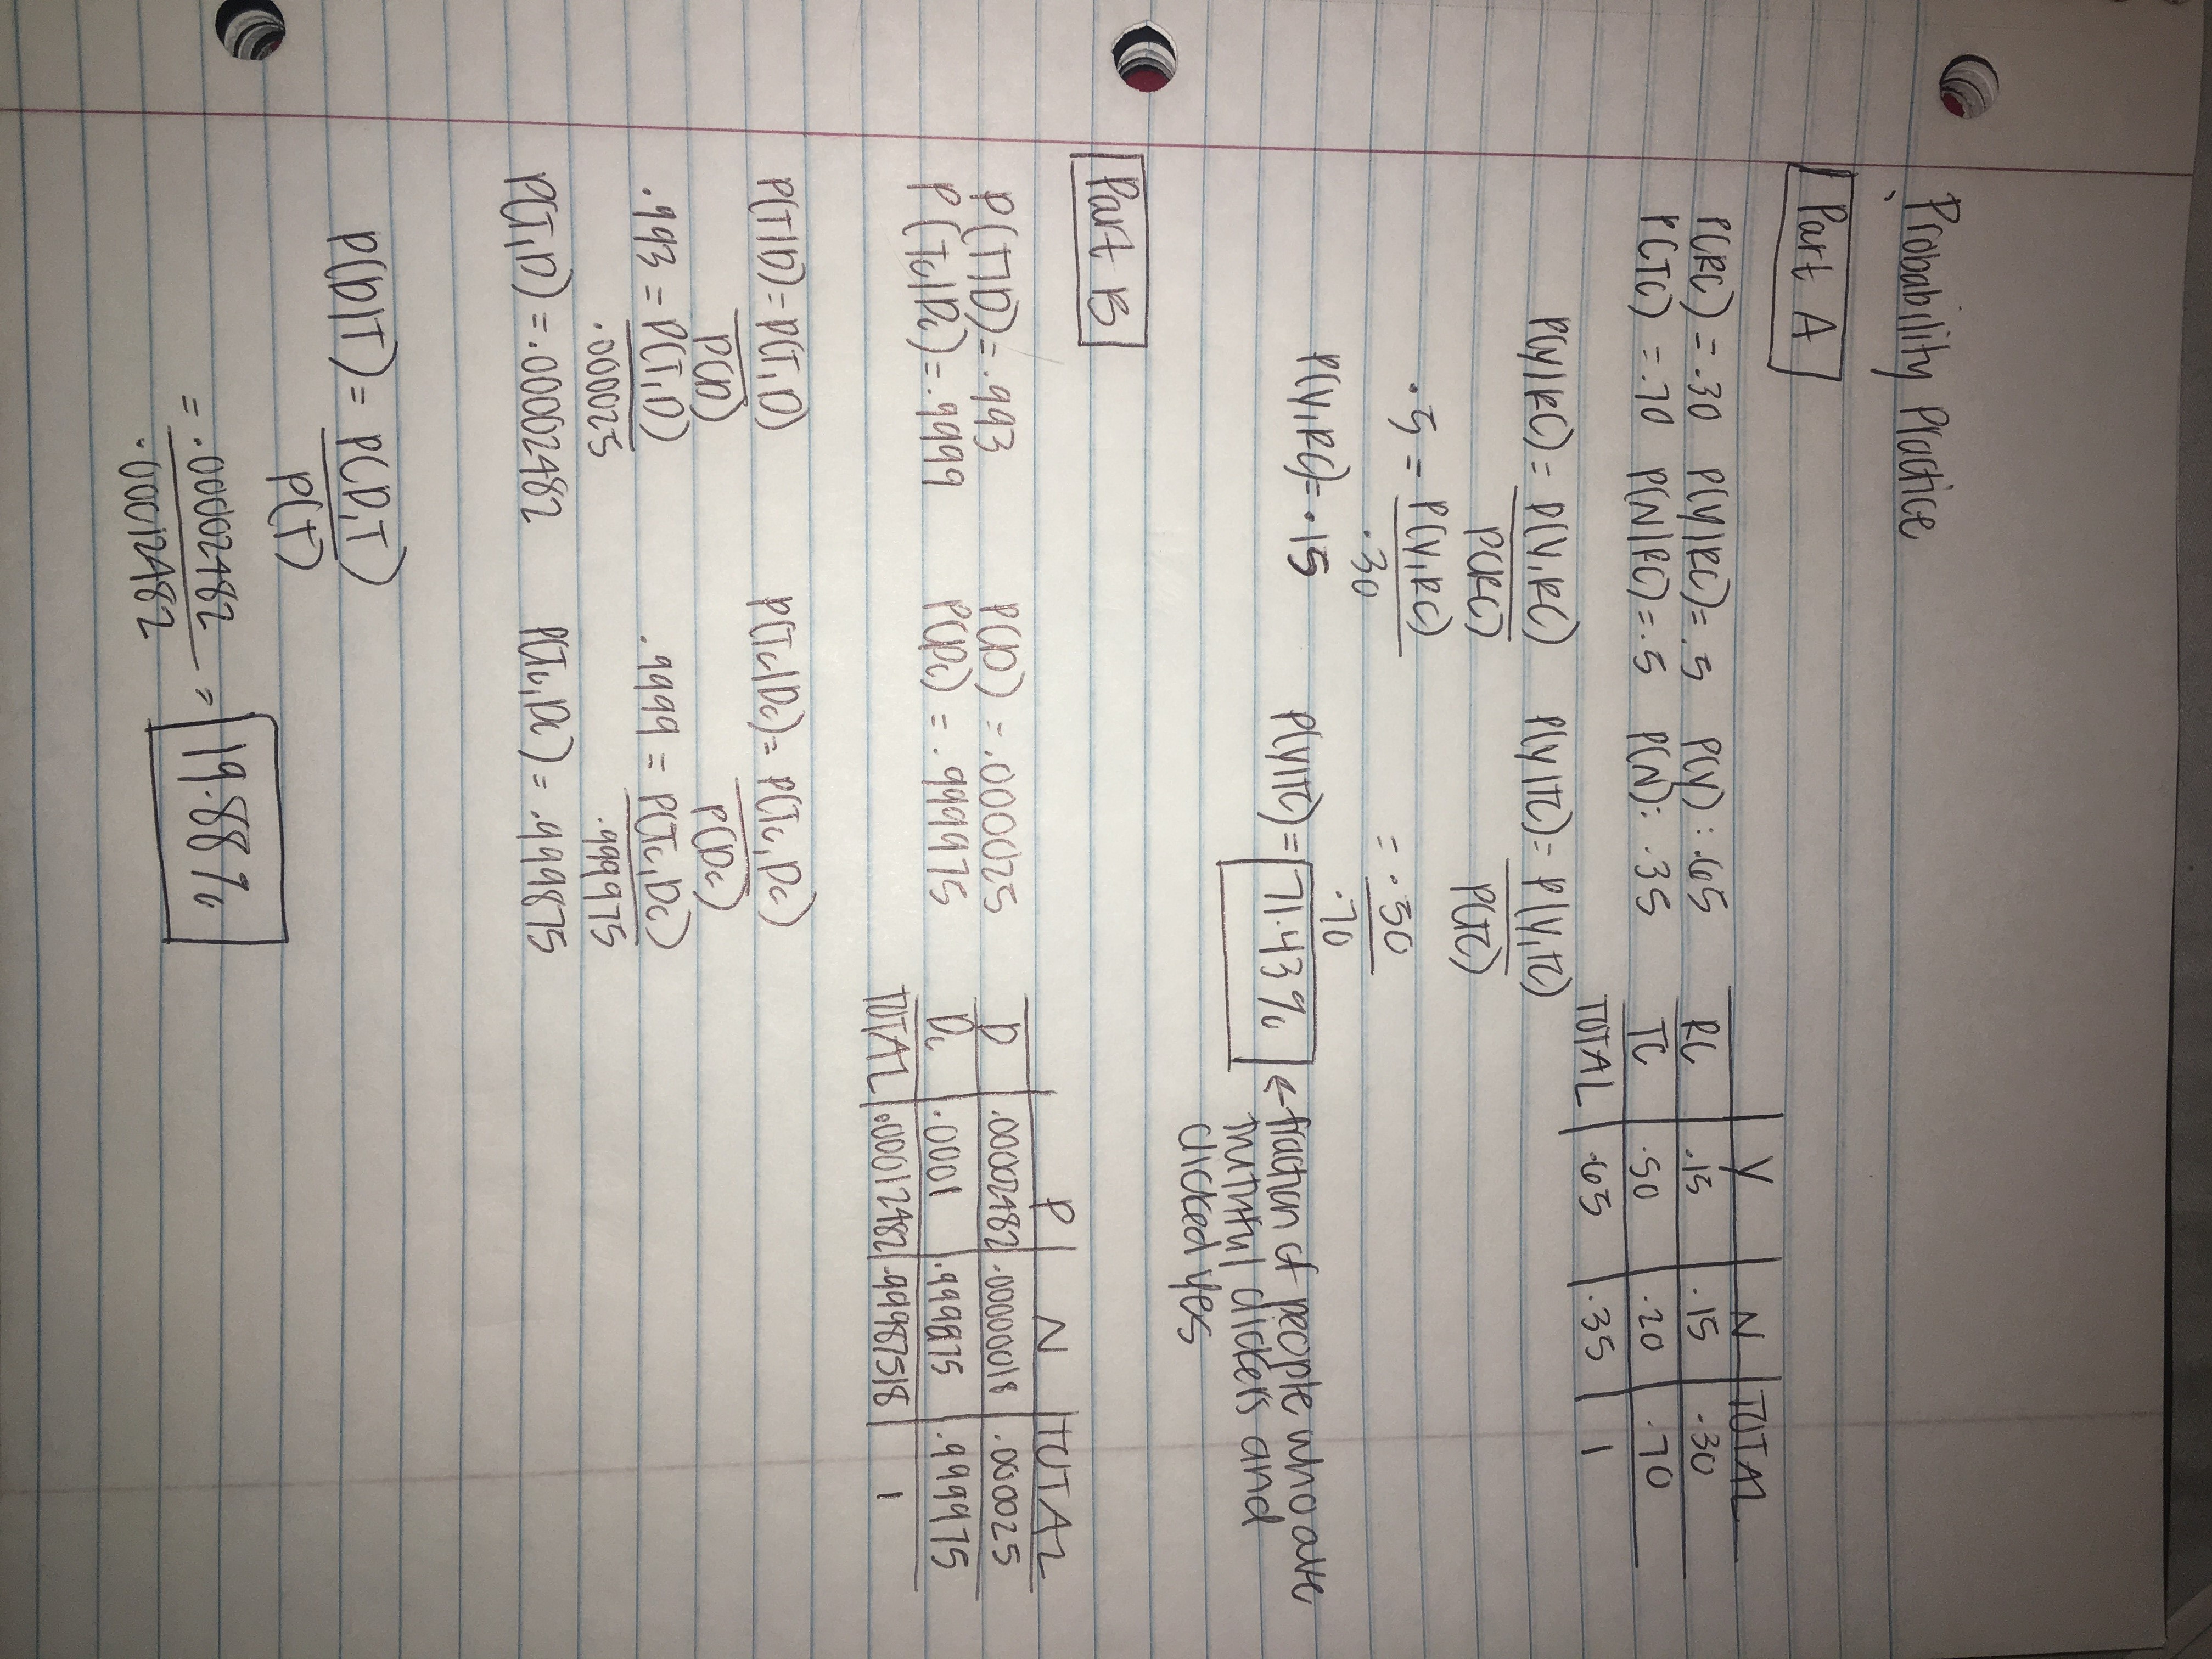 Probability Practice
Part A
P(RC) = .30 P(Y|RC) = .5 P(Y) : .65
P(TC) = .70 P(N|RC) = .5 P(N) : .35
Y | N | TOTAL
RC | .15 | .15 | .30
TC | .50 | .20 | .70
TOTAL | .65 | .35 | 1
P(Y|RC) = P(Y,RC) P(Y|TC) = P(Y,TC)
P(RC) P(TC)
.5 = P(Y,RC) = .50
.30 .70
P(Y,RC) = .15 P(Y|TC) = 71.43% ← fraction of people who are
truthful clickers and
clicked yes
Part B
P(T|D) = .993 P(D) = .000025
P(Tc|Dc) = .9999 P(Dc) = .999975
P | N | TOTAL
D | .00002482 | .00000018 | .000025
Dc | .0001 | .999875 | .999975
TOTAL | .00012482 | .99987518 | 1
P(T|D) = P(T,D) P(Tc|Dc) = P(Tc,Dc)
P(D) P(Dc)
.993 = P(T,D) .9999 = P(Tc,Dc)
.000025 .999975
P(T,D) = .00002482 P(Tc,Dc) = .999875
P(D|T) = P(D,T)
P(T)
= .00002482 = 19.88%
.00012482